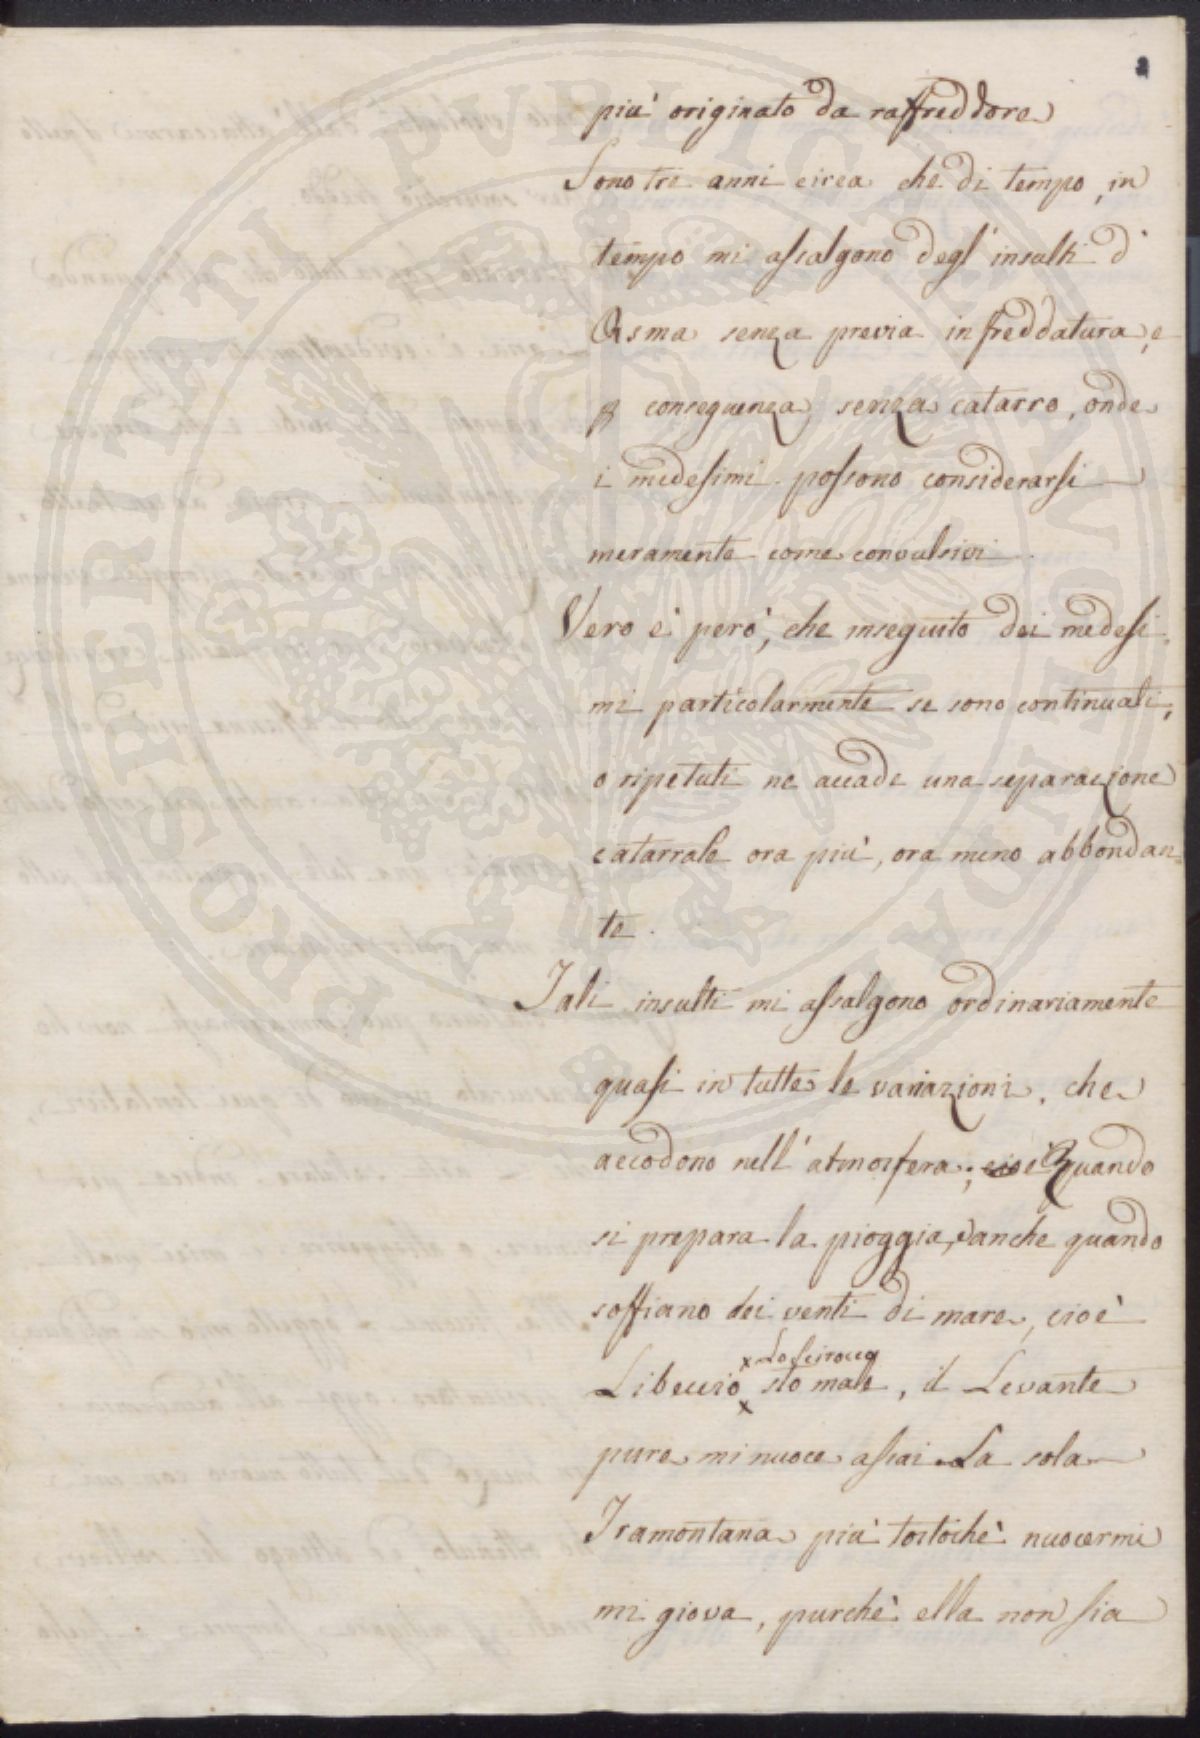 PROSPERITATI PVBLICAE AVGVENDAE
più originato da raffreddore
Sono tre anni circa che di tempo, in
tempo mi assalgono degl' insulti d'
Asma senza previa infreddatura, e
p conseguenza senza catarro, onde
i medesimi possono considerarsi
meramente come convulsivi.
Vero è però, che inseguito dei medesi
mi particolarmente se sono continuati,
o ripetuti ne accade una separazione
catarrale ora più, ora meno abbondan=
te.
Tali insulti mi assalgono ordinariamente
quasi in tutte le variazioni, che
accodono nell' atmosfera, cioè quando
si prepara la pioggia, anche quando
soffiano dei venti di mare, cioè
x Lo scirocco
Libeccio x sto male, il Levante
pure mi nuoce assai. La sola
Tramontana più tostochè nuocermi
mi giova, purchè ella non sia